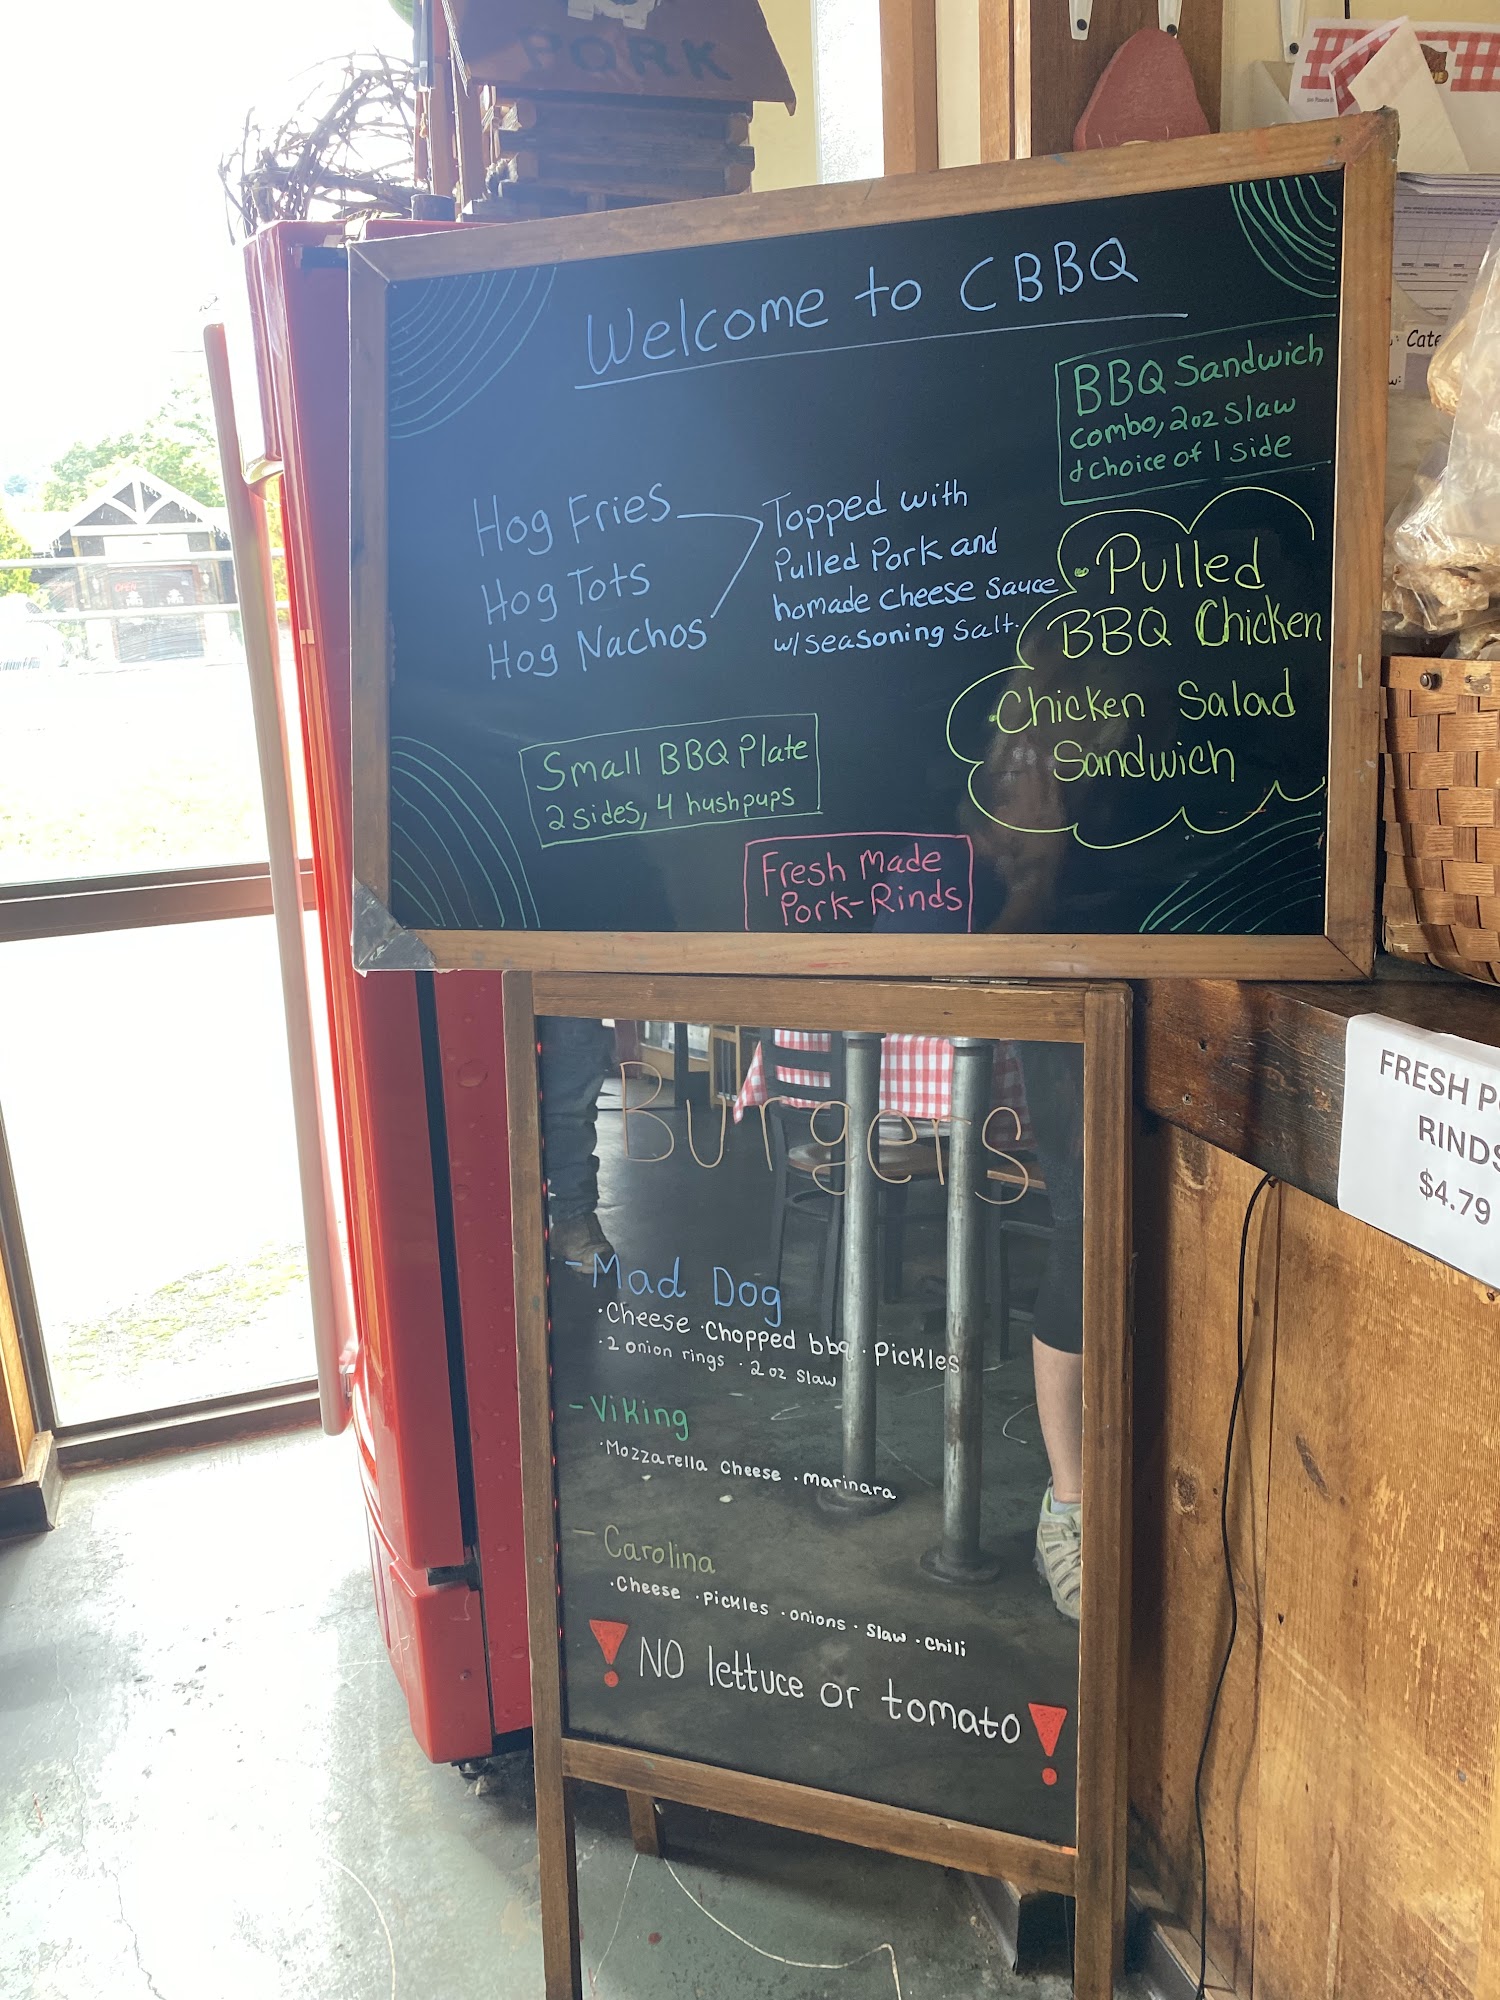 PORK
Welcome to CBBQ
BBQ Sandwich
Combo, 2oz Slaw
& Choice of 1 Side
Hog Fries
Hog Tots
Hog Nachos
Topped with
Pulled Pork and
homade cheese sauce
w/ seasoning salt.
• Pulled
BBQ Chicken
• Chicken Salad
Sandwich
Small BBQ Plate
2 sides, 4 hushpups
Fresh Made
Pork-Rinds
Cate
w:
FRESH PO
RINDS
$4.79
Burgers
- Mad Dog
• Cheese • Chopped bbq • Pickles
• 2 onion rings • 2 oz slaw
- Viking
• Mozzarella Cheese • Marinara
- Carolina
• Cheese • Pickles • onions • Slaw • Chili
! NO lettuce or tomato !
OPEN